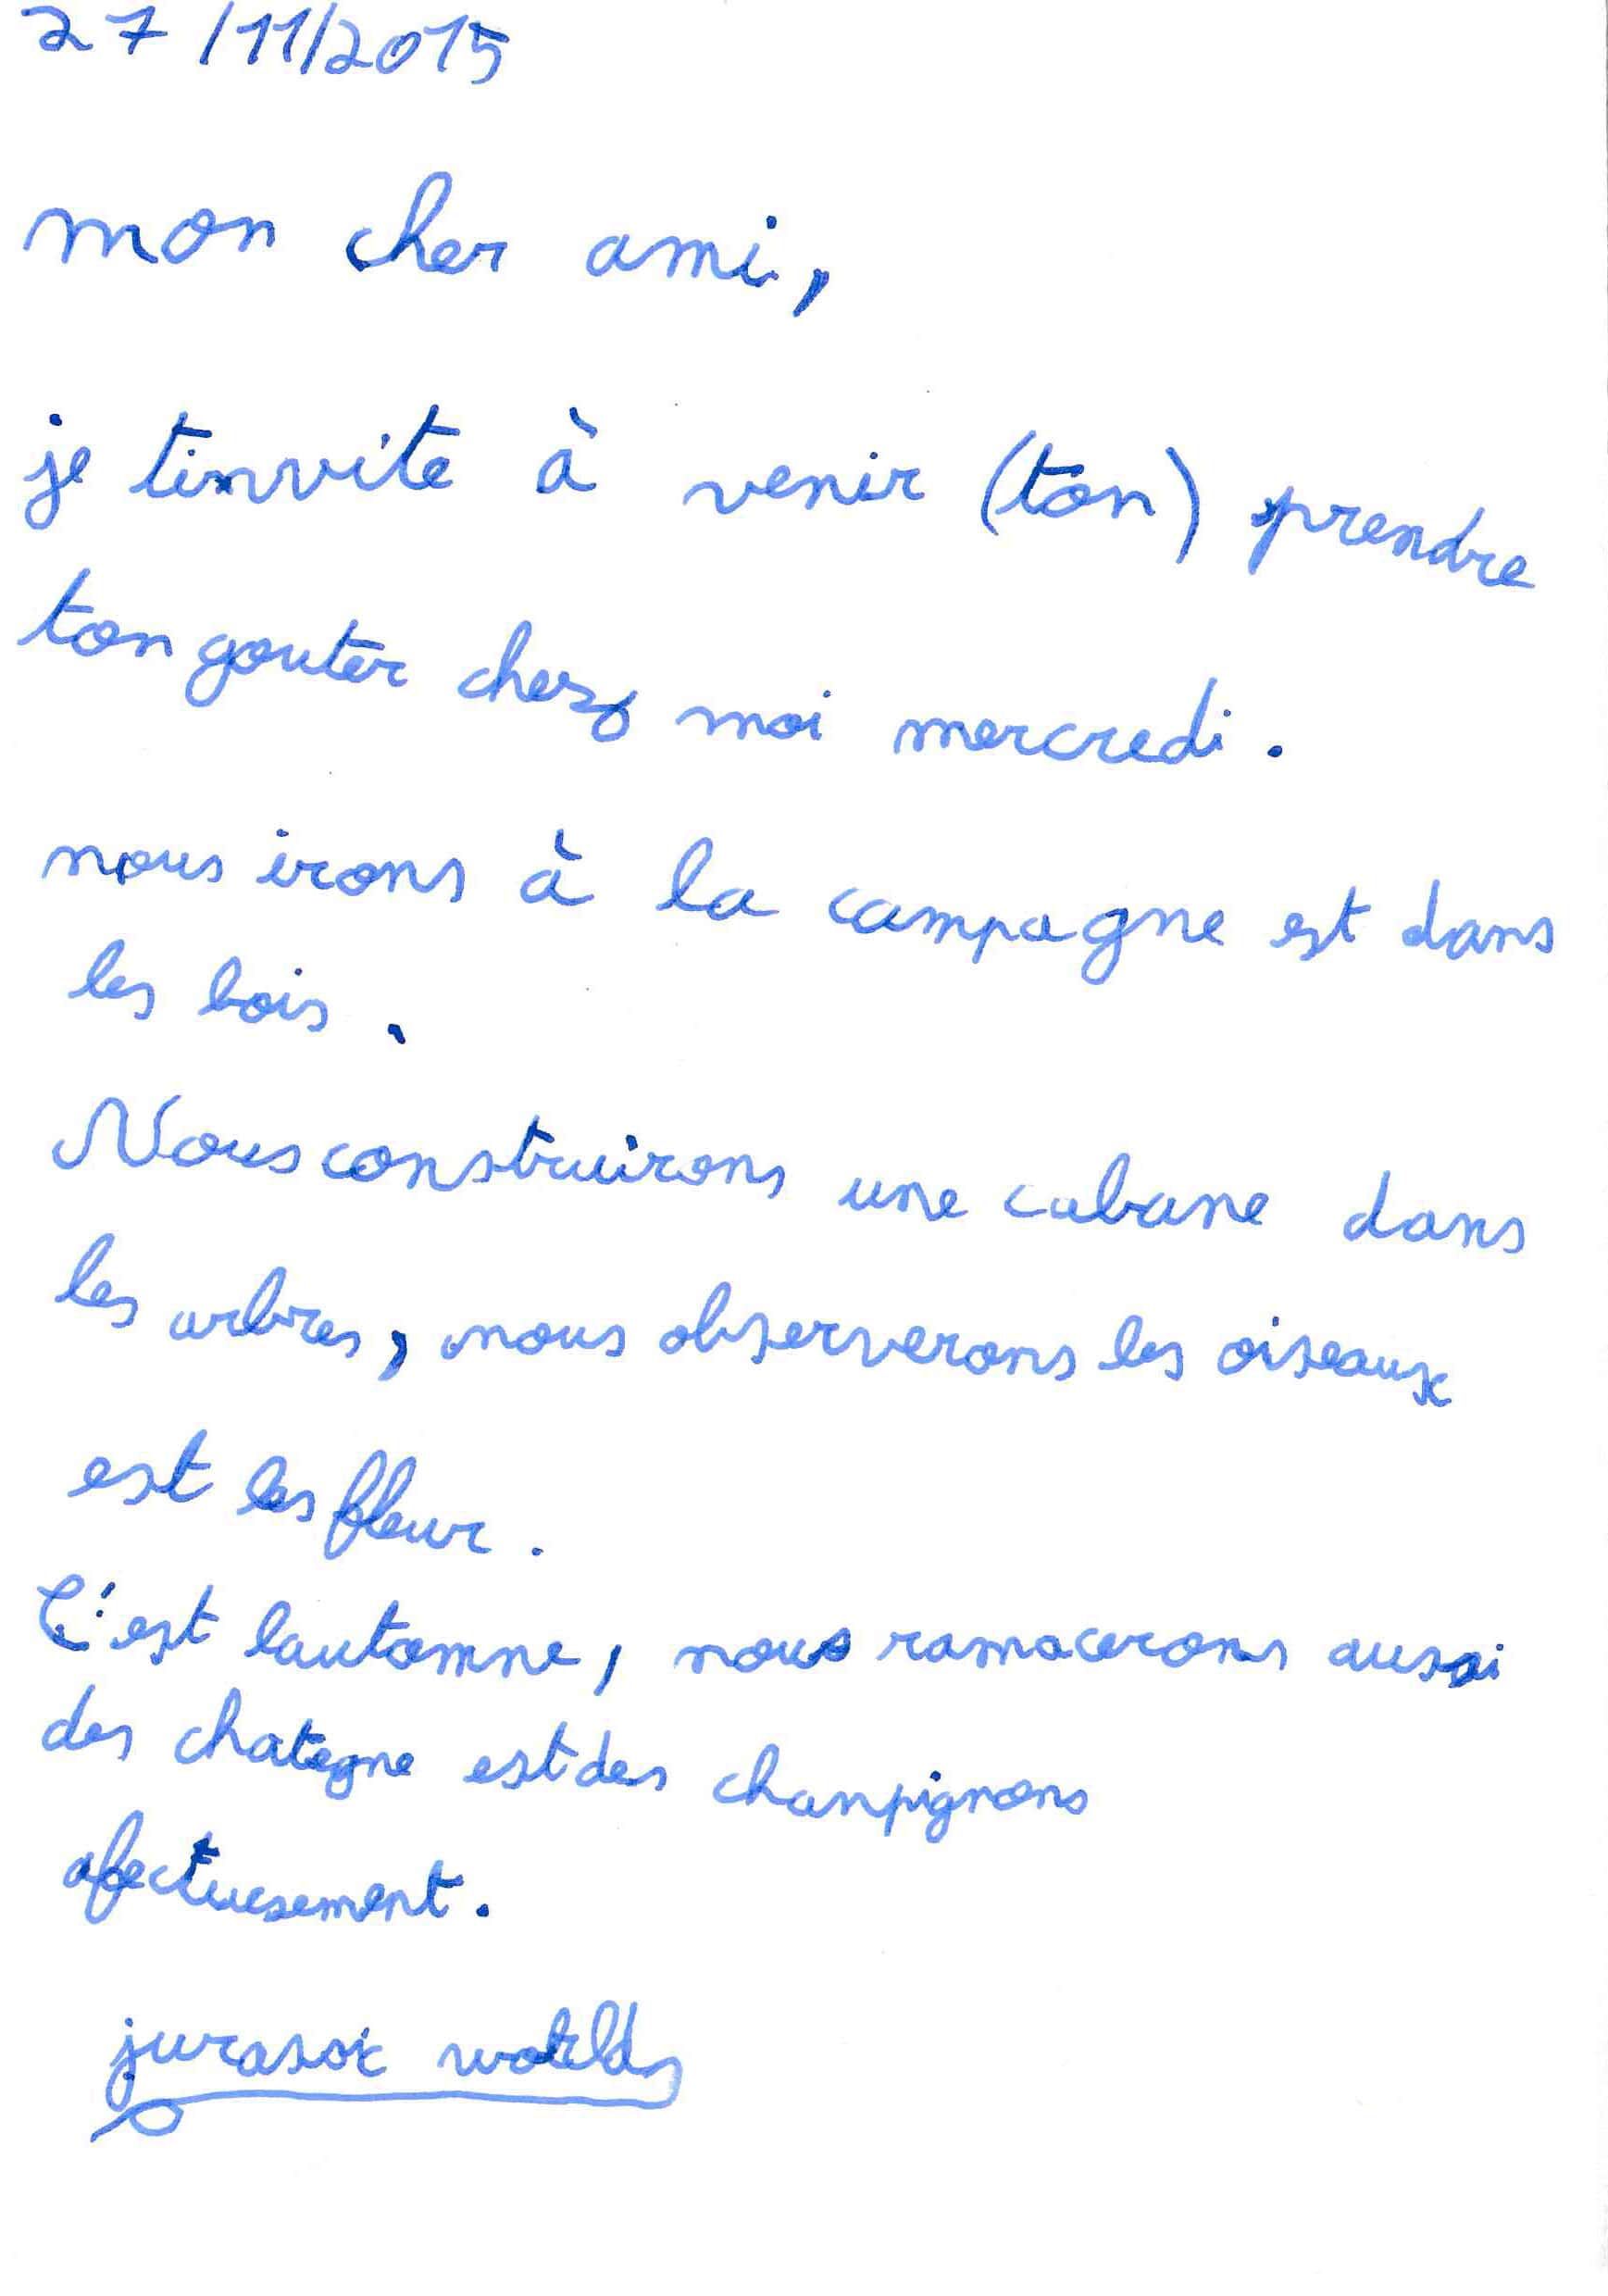 27/11/2015
mon cher ami,
je tinvite à venir (ton) prendre
ton gouter chez moi mercredi.
nous irons à la campagne est dans
les bois.
Nous construirons une cabane dans
les arbres, nous observerons les oiseaux
est les fleur.
C'est lautomne, nous ramacerons aussi
des chategne est des chanpignons
afectuesement.
jurasic world